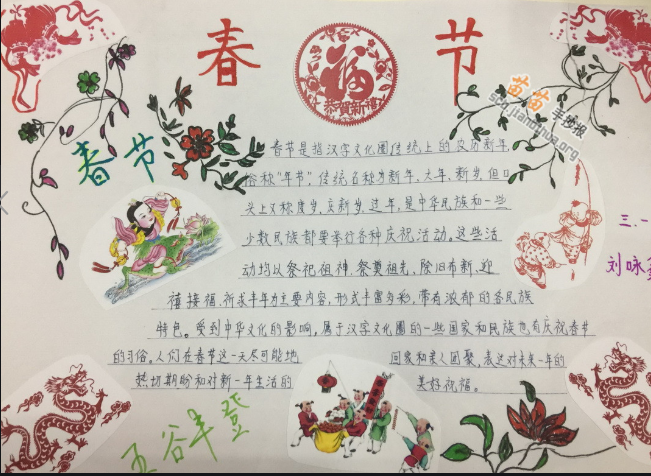 春节
恭贺新禧
苗苗手抄报
scq.jianghua.org
春节
春节是指汉字文化圈传统上的农历新年,
俗称"年节",传统名称为新年、大年、新岁,但口
头上又称度岁、庆新岁、过年,是中华民族和一些
少数民族都要举行各种庆祝活动。这些活
动均以祭祀祖神、祭奠祖先、除旧布新、迎
禧接福、祈求丰年为主要内容,形式丰富多彩,带有浓郁的各民族
特色。受到中华文化的影响,属于汉字文化圈的一些国家和民族也有庆祝春节
的习俗。人们在春节这一天尽可能地 回家和亲人团聚,表达对未来一年的
热切期盼和对新一年生活的 美好祝福。
三.一
刘咏
五谷丰登